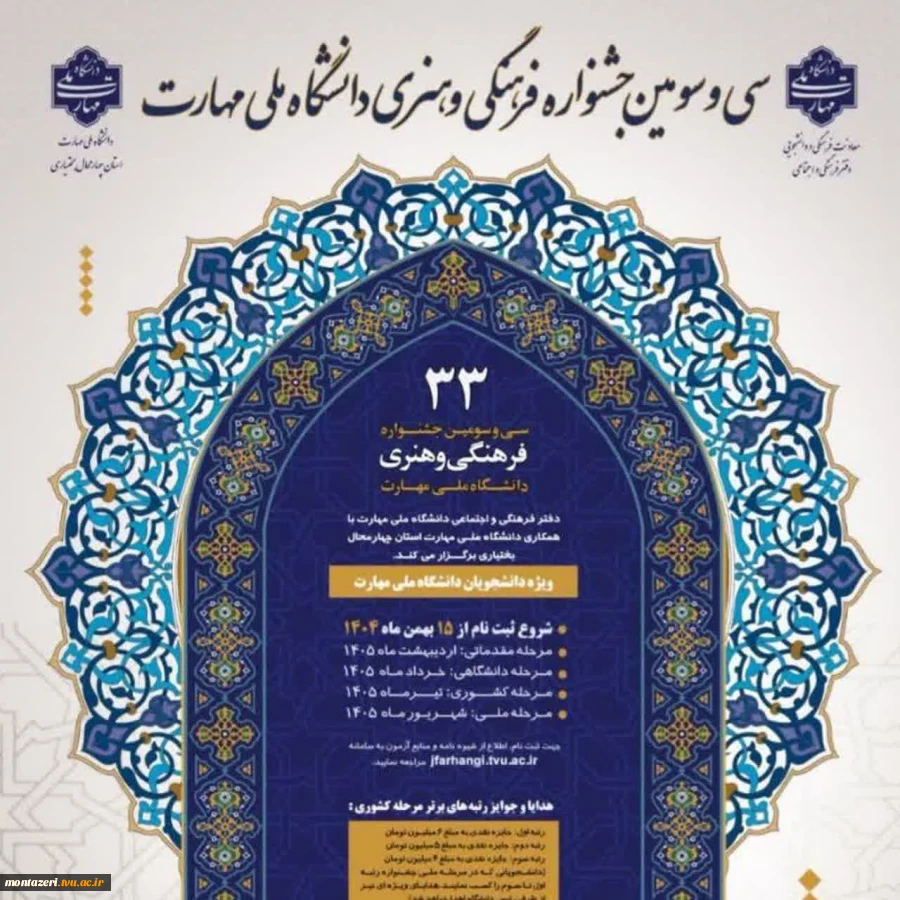 سی و سومین جشنواره فرهنگی و هنری دانشگاه ملی مهارت
دانشگاه ملی مهارت
معاونت فرهنگی و دانشجویی
دفتر فرهنگی و اجتماعی
دانشگاه ملی مهارت
دانشگاه ملی مهارت
استان چهارمحال بختیاری
۳۳
سی و سومین جشنواره
فرهنگی و هنری
دانشگاه ملی مهارت
دفتر فرهنگی و اجتماعی دانشگاه ملی مهارت با
همکاری دانشگاه ملی مهارت استان چهارمحال
بختیاری برگزار می کند.
ویژه دانشجویان دانشگاه ملی مهارت
شروع ثبت نام از ۱۵ بهمن ماه ۱۴۰۴
مرحله مقدماتی: اردیبهشت ماه ۱۴۰۵
مرحله دانشگاهی: خرداد ماه ۱۴۰۵
مرحله کشوری: تیر ماه ۱۴۰۵
مرحله ملی: شهریور ماه ۱۴۰۵
جهت ثبت نام، اطلاع از شیوه نامه و منابع آزمون به سامانه
jfarhangi.tvu.ac.ir مراجعه نمایید.
هدایا و جوایز رتبه های برتر مرحله کشوری :
رتبه اول: جایزه نقدی به مبلغ ۶ میلیون تومان
رتبه دوم: جایزه نقدی به مبلغ ۵ میلیون تومان
رتبه سوم: جایزه نقدی به مبلغ ۴ میلیون تومان
(دانشجویانی که در مرحله ملی جشنواره رتبه
اول تا سوم را کسب نمایند هدایای ویژه ای نیز
montazeri.tvu.ac.ir